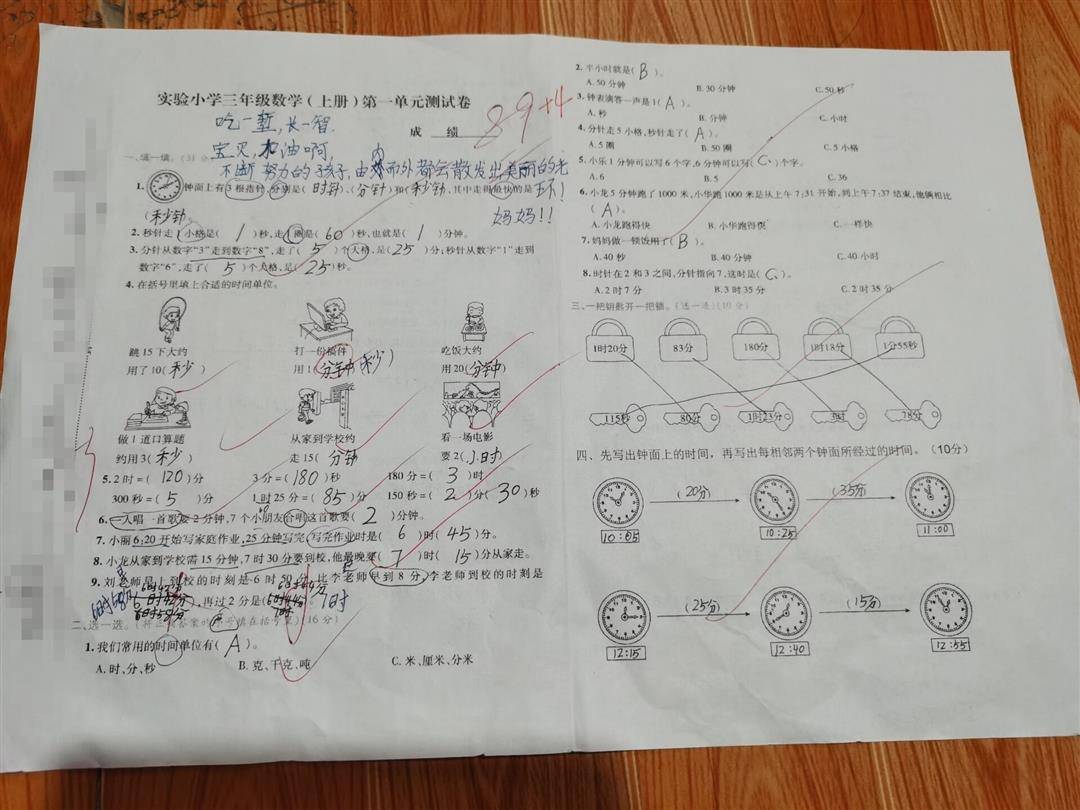 实验小学三年级数学(上册)第一单元测试卷
吃一堑,长一智.
成 绩 89+4
宝贝,加油啊,
不断努力的孩子,由内而外都会散发出美丽的光环!
妈妈!!
一、填一填。(31分)
1. 钟面上有3根指针,分别是(时针)、(分针)和(秒针),其中走得最快的是
(秒针)。
2. 秒针走1小格是( 1 )秒,走1圈是( 60 )秒,也就是( 1 )分钟。
3. 分针从数字“3”走到数字“8”,走了( 5 )个大格,是( 25 )分;秒针从数字“1”走到
数字“6”,走了( 5 )个大格,是( 25 )秒。
4. 在括号里填上合适的时间单位。
跳15下大约 打一份稿件 吃饭大约
用了10(秒) 用1(分钟)(秒) 用20(分钟)
做1道口算题 从家到学校约 看一场电影
约用3(秒) 走15(分钟 要2(小时)
5. 2时=( 120 )分 3分=( 180 )秒 180分=( 3 )时
300秒=( 5 )分 1时25分=( 85 )分 150秒=( 2 )分( 30 )秒
6. 一人唱一首歌要2分钟,7个小朋友合唱这首歌要( 2 )分钟。
7. 小丽6:20开始写家庭作业,25分钟写完,写完作业时是( 6 )时( 45 )分。
8. 小龙从家到学校需15分钟,7时30分要到校,他最晚要( 7 )时( 15 )分从家走。
9. 刘老师早上到校的时刻是6时50分,比李老师早到8分,李老师到校的时刻是
6时58分 ,再过2分是( 7时
二、选一选。(将正确答案的序号填在括号里)(16分)
1. 我们常用的时间单位有( A )。
A. 时、分、秒 B. 克、千克、吨 C. 米、厘米、分米
2. 半小时就是( B )。
A. 50分钟 B. 30分钟 C. 50秒
3. 钟表滴答一声是1( A )。
A. 秒 B. 分钟 C. 小时
4. 分针走5小格,秒针走了( A )。
A. 5圈 B. 50圈 C. 5小格
5. 小乐1分钟可以写6个字,6分钟可以写( C )个字。
A. 6 B. 5 C. 36
6. 小龙5分钟跑了1000米,小华跑1000米是从上午7:31开始,到上午7:37结束,他俩相比
( A )。
A. 小龙跑得快 B. 小华跑得快 C. 一样快
7. 妈妈做一顿饭用了( B )。
A. 40秒 B. 40分钟 C. 40小时
8. 时针在2和3之间,分针指向7,这时是( C )。
A. 2时7分 B. 3时35分 C. 2时35分
三、一把钥匙开一把锁。(连一连)(10分)
1时20分 83分 180分 1时18分 1分55秒
115秒 80分 1时23分 3时 78分
四、先写出钟面上的时间,再写出每相邻两个钟面所经过的时间。(10分)
(20分) (35分)
10:05 10:25 11:00
(25分) (15分)
12:15 12:40 12:55